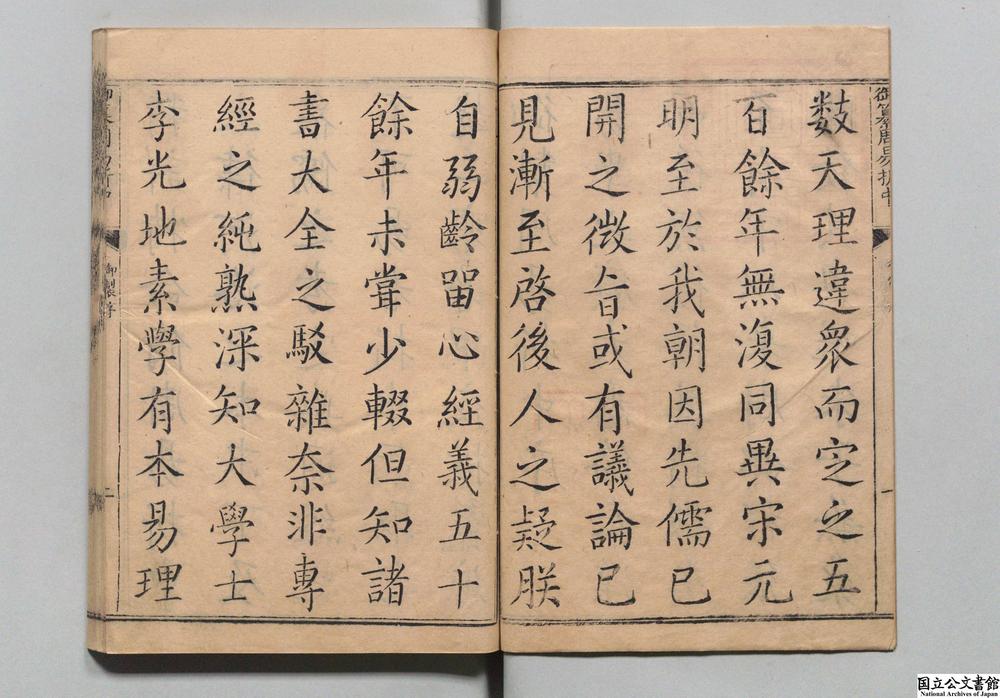 御纂周易折中
一
數天理違衆而定之五
百餘年無復同異宋元
明至於我朝因先儒已
開之微旨或有議論已
見漸至啓後人之疑朕
自弱齡留心經義五十
餘年未嘗少輟但知諸
書大全之駁雜奈非專
經之純熟深知大學士
李光地素學有本易理
御製序
二
国立公文書館
National Archives of Japan